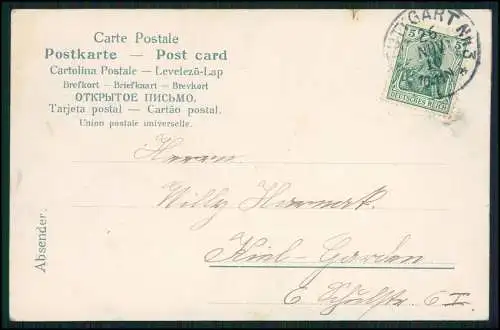 Carte Postale
Postkarte — Post card
Cartolina Postale — Levelező-Lap
Brefkort — Briefkaart — Brevkort
ОТКРЫТОЕ ПИСЬМО.
Tarjeta postal — Cartão postal.
Union postale universelle.
STUTTGART No.3
26
NOV
5 5
DEUTSCHES REICH
Herrn
Willy
Kiel-Garden
Schulstr. 6 I
Absender.